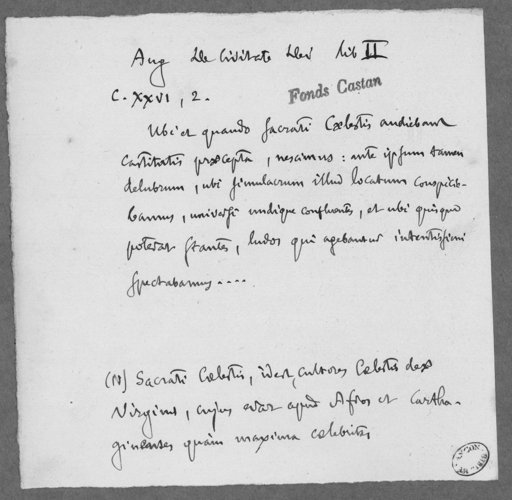 Aug de Civitate Dei lib II
C. XXVI, 2.
Fonds Castan
Ubi et quando sacrati Cœlestis audiebant
castitatis præcepta, nescimus : ante ipsum tamen
delubrum, ubi simulacrum illud locatum conspicie-
bamus, universi undique confluentes, et ubi quisque
poterat stantes, ludos qui agebantur intentissimi
spectabamus....
(N) Sacrati Cœlestis, idest, cultores Cœlestis deæ
Virginis, cujus erat apud Afros et Cartha-
ginenses quàm maxima celebritas